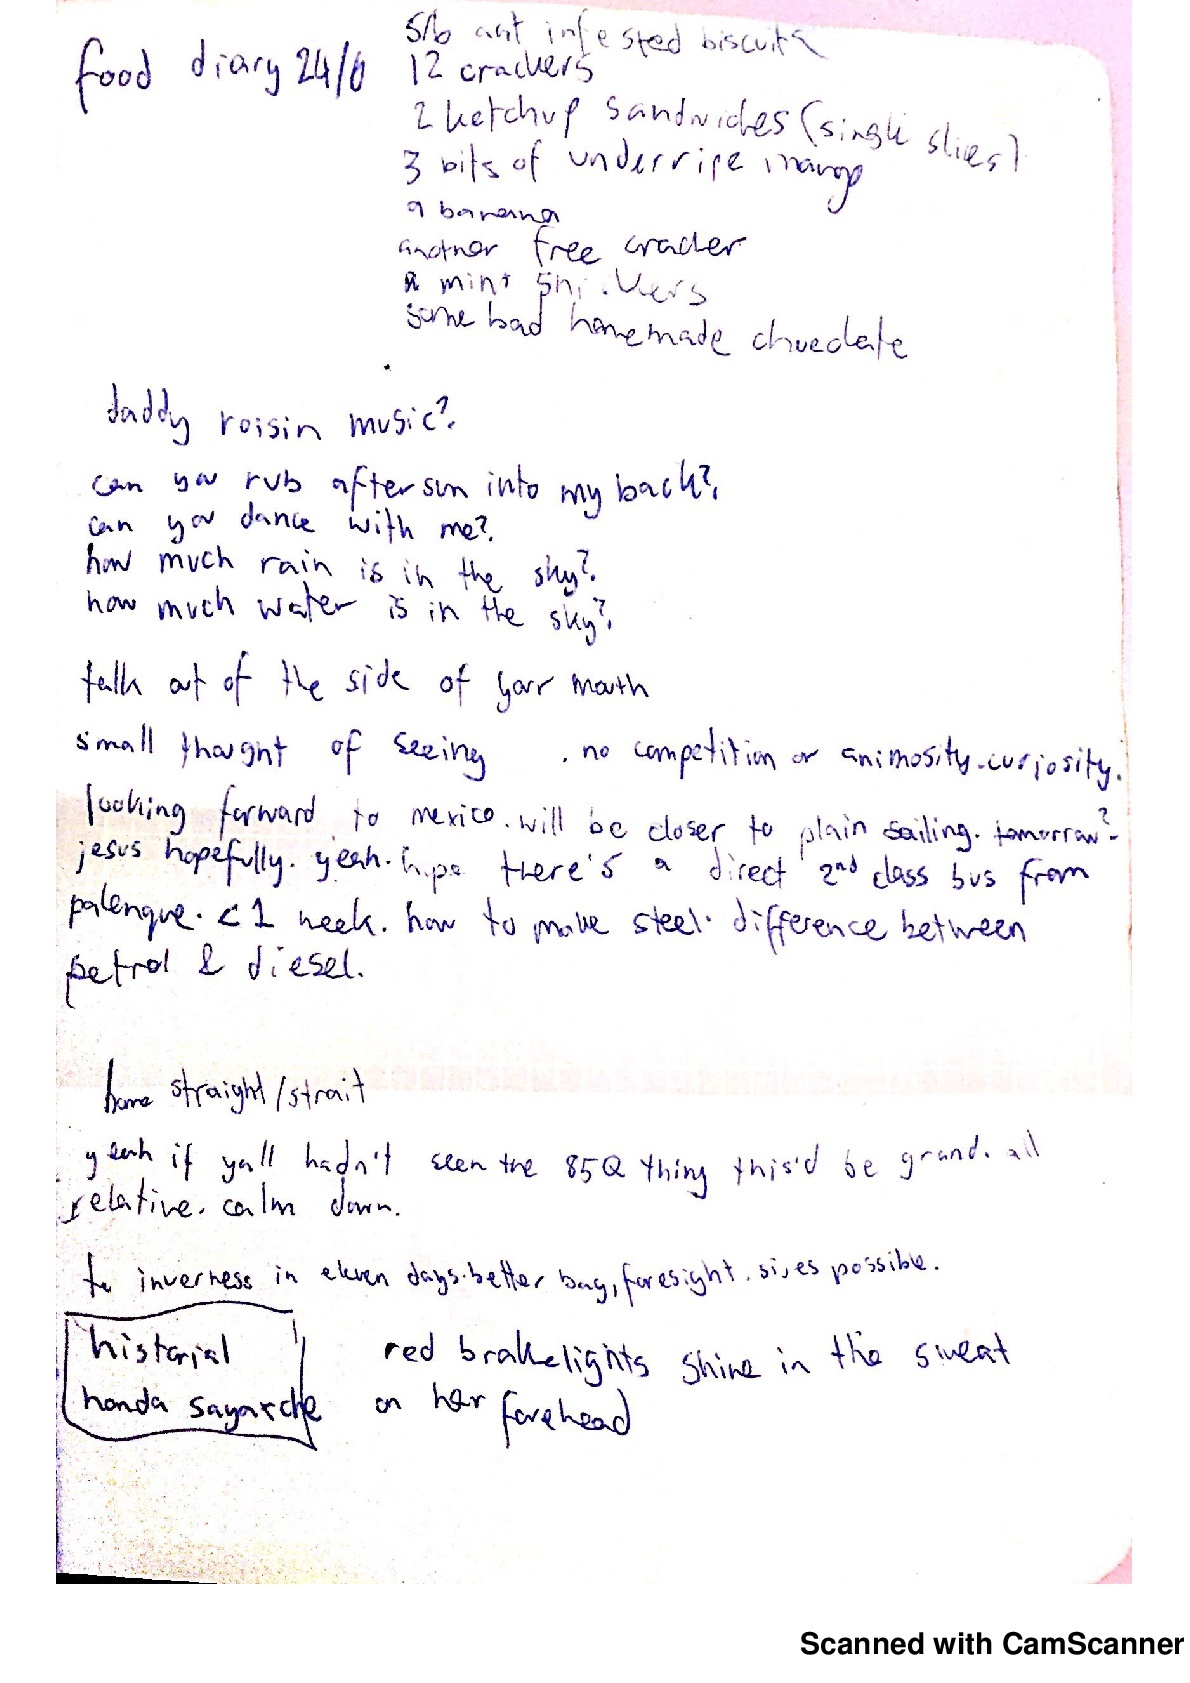 food diary 24/6
5/6 ant infested biscuits
12 crackers
2 ketchup sandwiches (single slices)
3 bits of underripe mango
a banana
another free cracker
a mint snickers
some bad homemade chocolate
daddy roisin music?
can you rub aftersun into my back?
can you dance with me?
how much rain is in the sky?
how much water is in the sky?
talk out of the side of your mouth
small thought of seeing . no competition or animosity. curiosity.
looking forward to mexico. will be closer to plain sailing. tomorrow?
jesus hopefully. yeah. hope there's a direct 2nd class bus from
palenque. < 1 week. how to make steel. difference between
petrol & diesel.
home straight/strait
yeah if yall hadn't seen the 85Q thing this'd be grand. all
relative. calm down.
to inverness in eleven days. better bag, foresight. possible.
historial
honda sayaxche
red brakelights shine in the sweat
on her forehead
Scanned with CamScanner